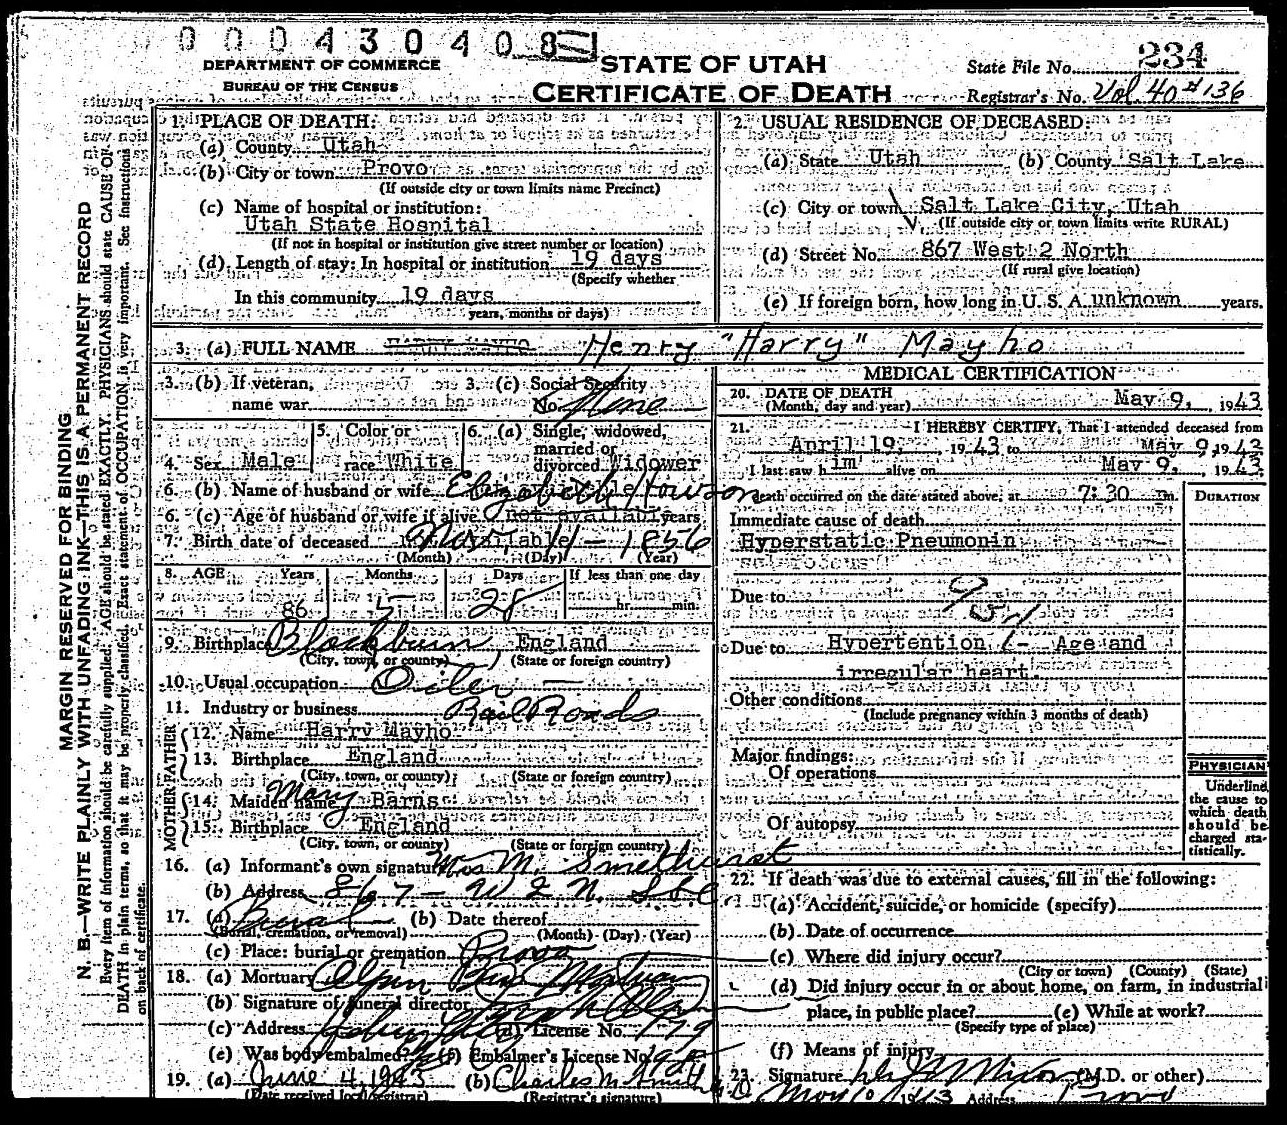 0 0 0 4 3 0 4 0 8 1
DEPARTMENT OF COMMERCE
BUREAU OF THE CENSUS
STATE OF UTAH
CERTIFICATE OF DEATH
State File No. 234
Registrar's No. Vol. 40 # 136
MARGIN RESERVED FOR BINDING
N. B.—WRITE PLAINLY WITH UNFADING INK—THIS IS A PERMANENT RECORD
Every item of information should be carefully supplied. AGE should be stated EXACTLY. PHYSICIANS should state CAUSE OF
DEATH in plain terms, so that it may be properly classified. Exact statement of OCCUPATION is very important. See instructions
on back of certificate.
1. PLACE OF DEATH:
(a) County Utah
(b) City or town Provo
(If outside city or town limits name Precinct)
(c) Name of hospital or institution:
Utah State Hospital
(If not in hospital or institution give street number or location)
(d) Length of stay: In hospital or institution 19 days
(Specify whether
In this community 19 days
years, months or days)
2. USUAL RESIDENCE OF DECEASED:
(a) State Utah (b) County Salt Lake
(c) City or town Salt Lake City, Utah
(If outside city or town limits write RURAL)
(d) Street No. 867 West 2 North
(If rural give location)
(e) If foreign born, how long in U. S. A. unknown years.
3. (a) FULL NAME HARRY MAYHO Henry "Harry" Mayho
3. (b) If veteran,
name war
3. (c) Social Security
No. None
4. Sex Male
5. Color or
race White
6. (a) Single, widowed,
married or
divorced Widower
6. (b) Name of husband or wife Elizabeth Howson
6. (c) Age of husband or wife if alive not available years
7. Birth date of deceased Nov 11 - 1856
(Month) (Day) (Year)
8. AGE Years Months Days If less than one day
86 5 28 hr. min.
9. Birthplace Blackburn, England
(City, town, or county) (State or foreign country)
10. Usual occupation Oiler
11. Industry or business Rail Roads
FATHER
12. Name Harry Mayho
13. Birthplace England
(City, town, or county) (State or foreign country)
MOTHER
14. Maiden name Mary Barns
15. Birthplace England
(City, town, or county) (State or foreign country)
16. (a) Informant's own signature Mrs M. Smethurst
(b) Address 867 - W 2 N. S.L.C.
17. (a) Burial (b) Date thereof
(Burial, cremation, or removal) (Month) (Day) (Year)
(c) Place: burial or cremation Provo
18. (a) Mortuary
(b) Signature of funeral director
(c) Address (d) License No. 179
(e) Was body embalmed? (f) Embalmer's License No.
19. (a) June 4, 1943 (b) Charles M. Smith
(Date received local registrar) (Registrar's signature)
MEDICAL CERTIFICATION
20. DATE OF DEATH
(Month, day and year) May 9, 1943
21. I HEREBY CERTIFY, That I attended deceased from
April 19, 1943 to May 9, 1943
I last saw him alive on May 9, 1943
Death occurred on the date stated above, at 7:30 m.
DURATION
Immediate cause of death
Hyperstatic Pneumonin
Due to
Due to Hypertention - Age and
irregular heart.
Other conditions
(Include pregnancy within 3 months of death)
Major findings:
Of operations
Of autopsy
PHYSICIAN
Underline
the cause to
which death
should be
charged sta-
tistically.
22. If death was due to external causes, fill in the following:
(a) Accident, suicide, or homicide (specify)
(b) Date of occurrence
(c) Where did injury occur?
(City or town) (County) (State)
(d) Did injury occur in or about home, on farm, in industrial
place, in public place? (e) While at work?
(Specify type of place)
(f) Means of injury
23. Signature (M.D. or other)
May 10 1943 Address Provo